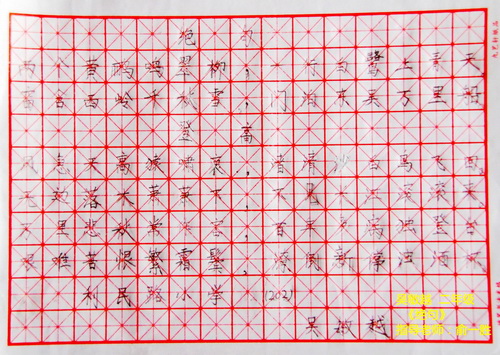 绝句
两个黄鸝鸣翠柳,一行白鹭上青天。
窗含西岭千秋雪,门泊东吴万里船。
登高
风急天高猿啸哀,渚清沙白鸟飞回。
无边落木萧萧下,不见长江滚滚来。
万里悲秋常作客,百年多病独登台
艰难苦恨繁霜鬓,潦倒新停浊酒杯
利民路小学 (202)
吴椒越
二年级
《绝句》
指导老师